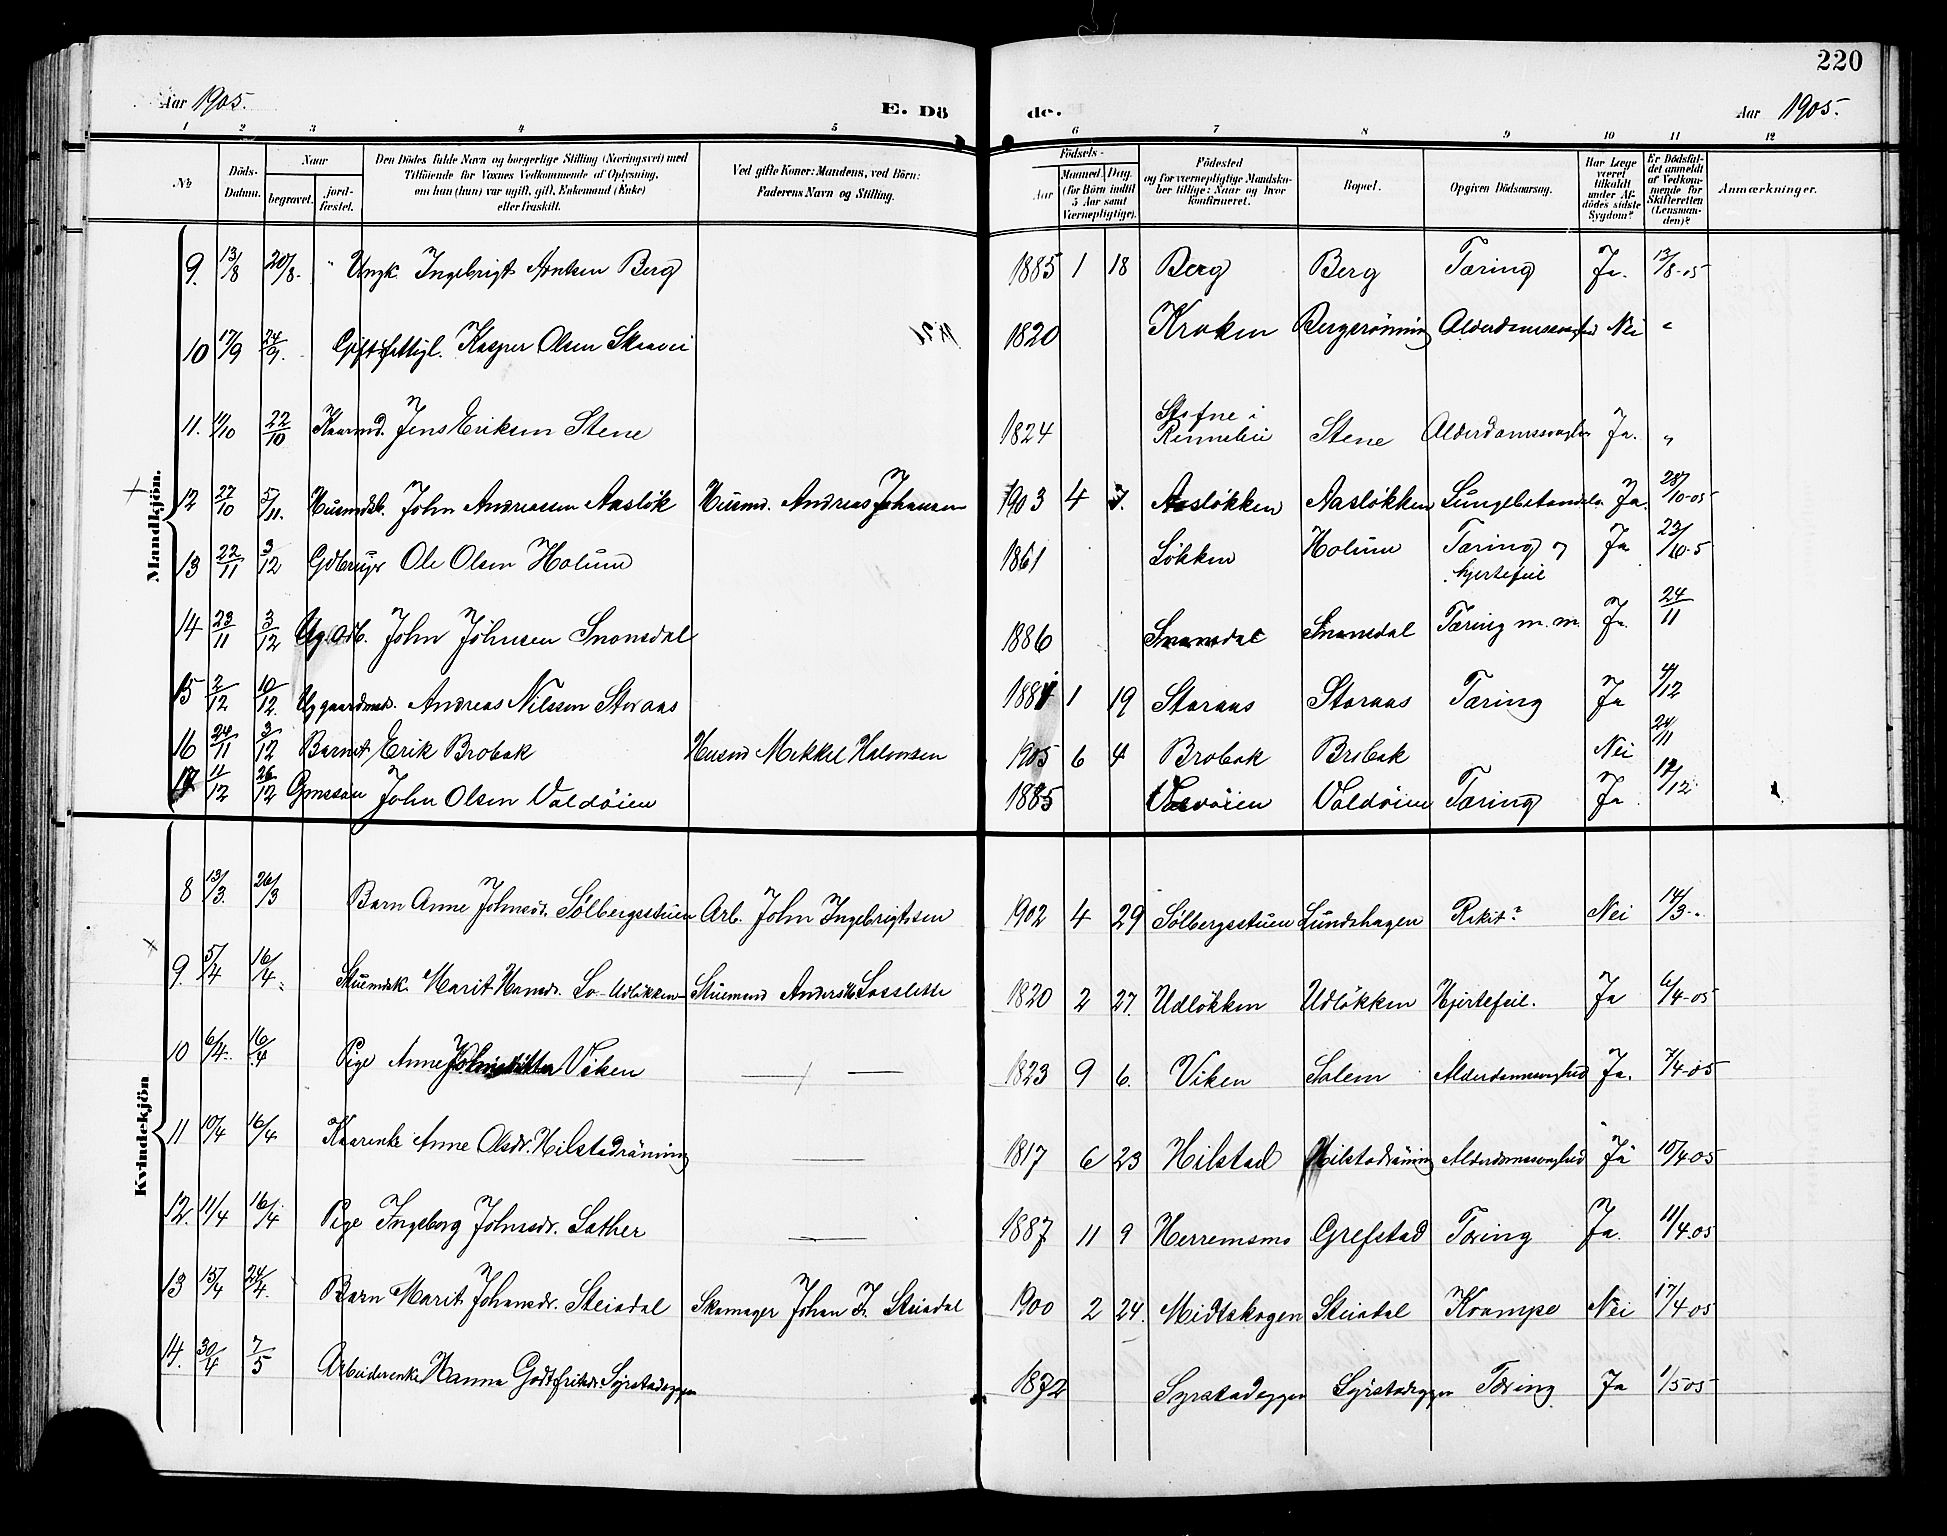 220
Aar 1905. E. Dö de. Aar 1905.
1 2 3 4 5 6 7 8 9 10 11 12
No.
Döds-Datum.
Naar
begravet.
jord-fæstet.
Den Dödes fulde Navn og borgerlige Stilling (Næringsvei) med
Tilföiende for Voxnes Vedkommende af Oplysning,
om han (hun) var ugift, gift, Enkemand (Enke)
eller fraskilt.
Ved gifte Koner: Mandens, ved Börn:
Faderens Navn og Stilling.
Födsels-
Aar
Maaned. Dag.
(for Börn indtil
5 Aar samt
Værnepligtige).
Födested
og for værnepligtige Mandska-
ber tillige: Naar og hvor
konfirmeret.
Bopæl.
Opgiven Dödsaarsag.
Har Læge
været
tilkaldt
under Af-
dödes sidste
Sygdom?
Er Dödsfal-
det anmeldt
af Vedkom-
mende for
Skifteretten
(Lensman-
den)?
Anmærkninger.
Mandkjön.
9. 13/8 20/8. " Ungk. Ingebrigt Arntsen Berg 1885 1 18 Berg Berg Tæring Ja. 13/8-05
10 17/9 24/9. Gift fattigl. Kasper Olsen 1820 Kroken Bergsrönning Alderdomssvaghed Nei "
11. 11/10 22/10 Kaarmd. Jens Eriksen Stene 1824 Stofne i Rennebu Stene Alderdomssvaghed Ja. "
12 27/10 5/11. Husmdsb. John Andreassen Aasløk Husmd. Andreas Johansen 1903 4 7. Aasløkken Aasløkken Lungebetændelse Ja. 28/10-05
13 22/11 3/12 Gdbruger Ole Olsen Holum 1861 Løkken Holum Tæring og hjertefeil Ja 23/10-5
14 23/11 3/12 Ug. arb. John Johnsen Snoasdal 1886 Snoasdal Snoasdal Tæring m.m. Ja. 24/11
15 2/12 10/12. Ug gaardmds. Andreas Nilssen Storaas 1881 1 19 Storaas Storaas Tæring Ja 4/12
16 24/11 3/12 Barnet Erik Brobak Husmd Mikkel Halvorsen 1905 6 4 Brobak Brobak Nei 24/11
17 11/12 26/12 John Olsen Valdøien 1885 Valdøien Valdøien Tæring Ja 12/12
Kvindekjön
8 13/3. 26/3 Barn Anne Johnsd. Sølbergsstuen Arb. John Ingebrigtsen 1902 4 29 Sølbergsstuen Lundshagen Rakit? Nei 14/3-"
9. 5/4 16/4. Stuemdsk. Marit Hansdr. Lo Udløkken Stuemand Anders Losslette 1820 2 27. Udløkken Udløkken Hjertefeil. Ja 6/4-05
10 6/4. 16/4 Pige Anne Johnsdatter Viken — — 1823 9 6. Viken Solem Alderdomssvaghed Ja. 7/4-05
11 10/4 16/4 Kaarenke Anne Olsdr. Hilstadrönning — 1817 6 23 Hilstad Hilstadrönning Alderdomssvaghed Ja 10/4-05
12. 11/4 16/4 Pige Ingeborg Johnsdr. Sæther — 1887 11 9 Herremsmo Grefstad Tæring Ja. 11/4-05
13 15/4 24/4. Barn Marit Johansdr. Steiadal Skomager Johan J. Steiadal 1900 2 24. Midtskogen Steiadal Krampe Nei 17/4-05
14. 30/4 7/5 Arbeiderenke Hanna Godtfritsdr. Syrstadeggen 1872 Syrstadeggen Syrstadeggen Tæring Ja 1/5 05